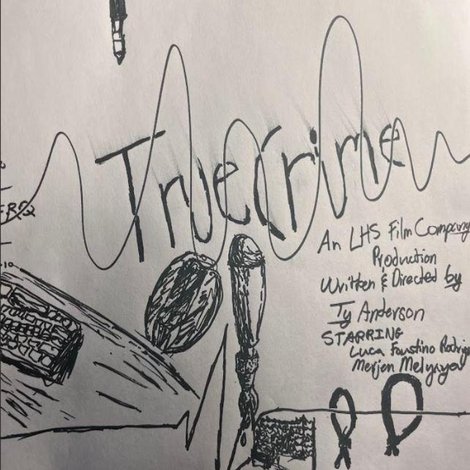 TrueCrime
An LHS Film Company
Production
Written & Directed by
Ty Anderson
STARRING
Luca Faustino
Merjen